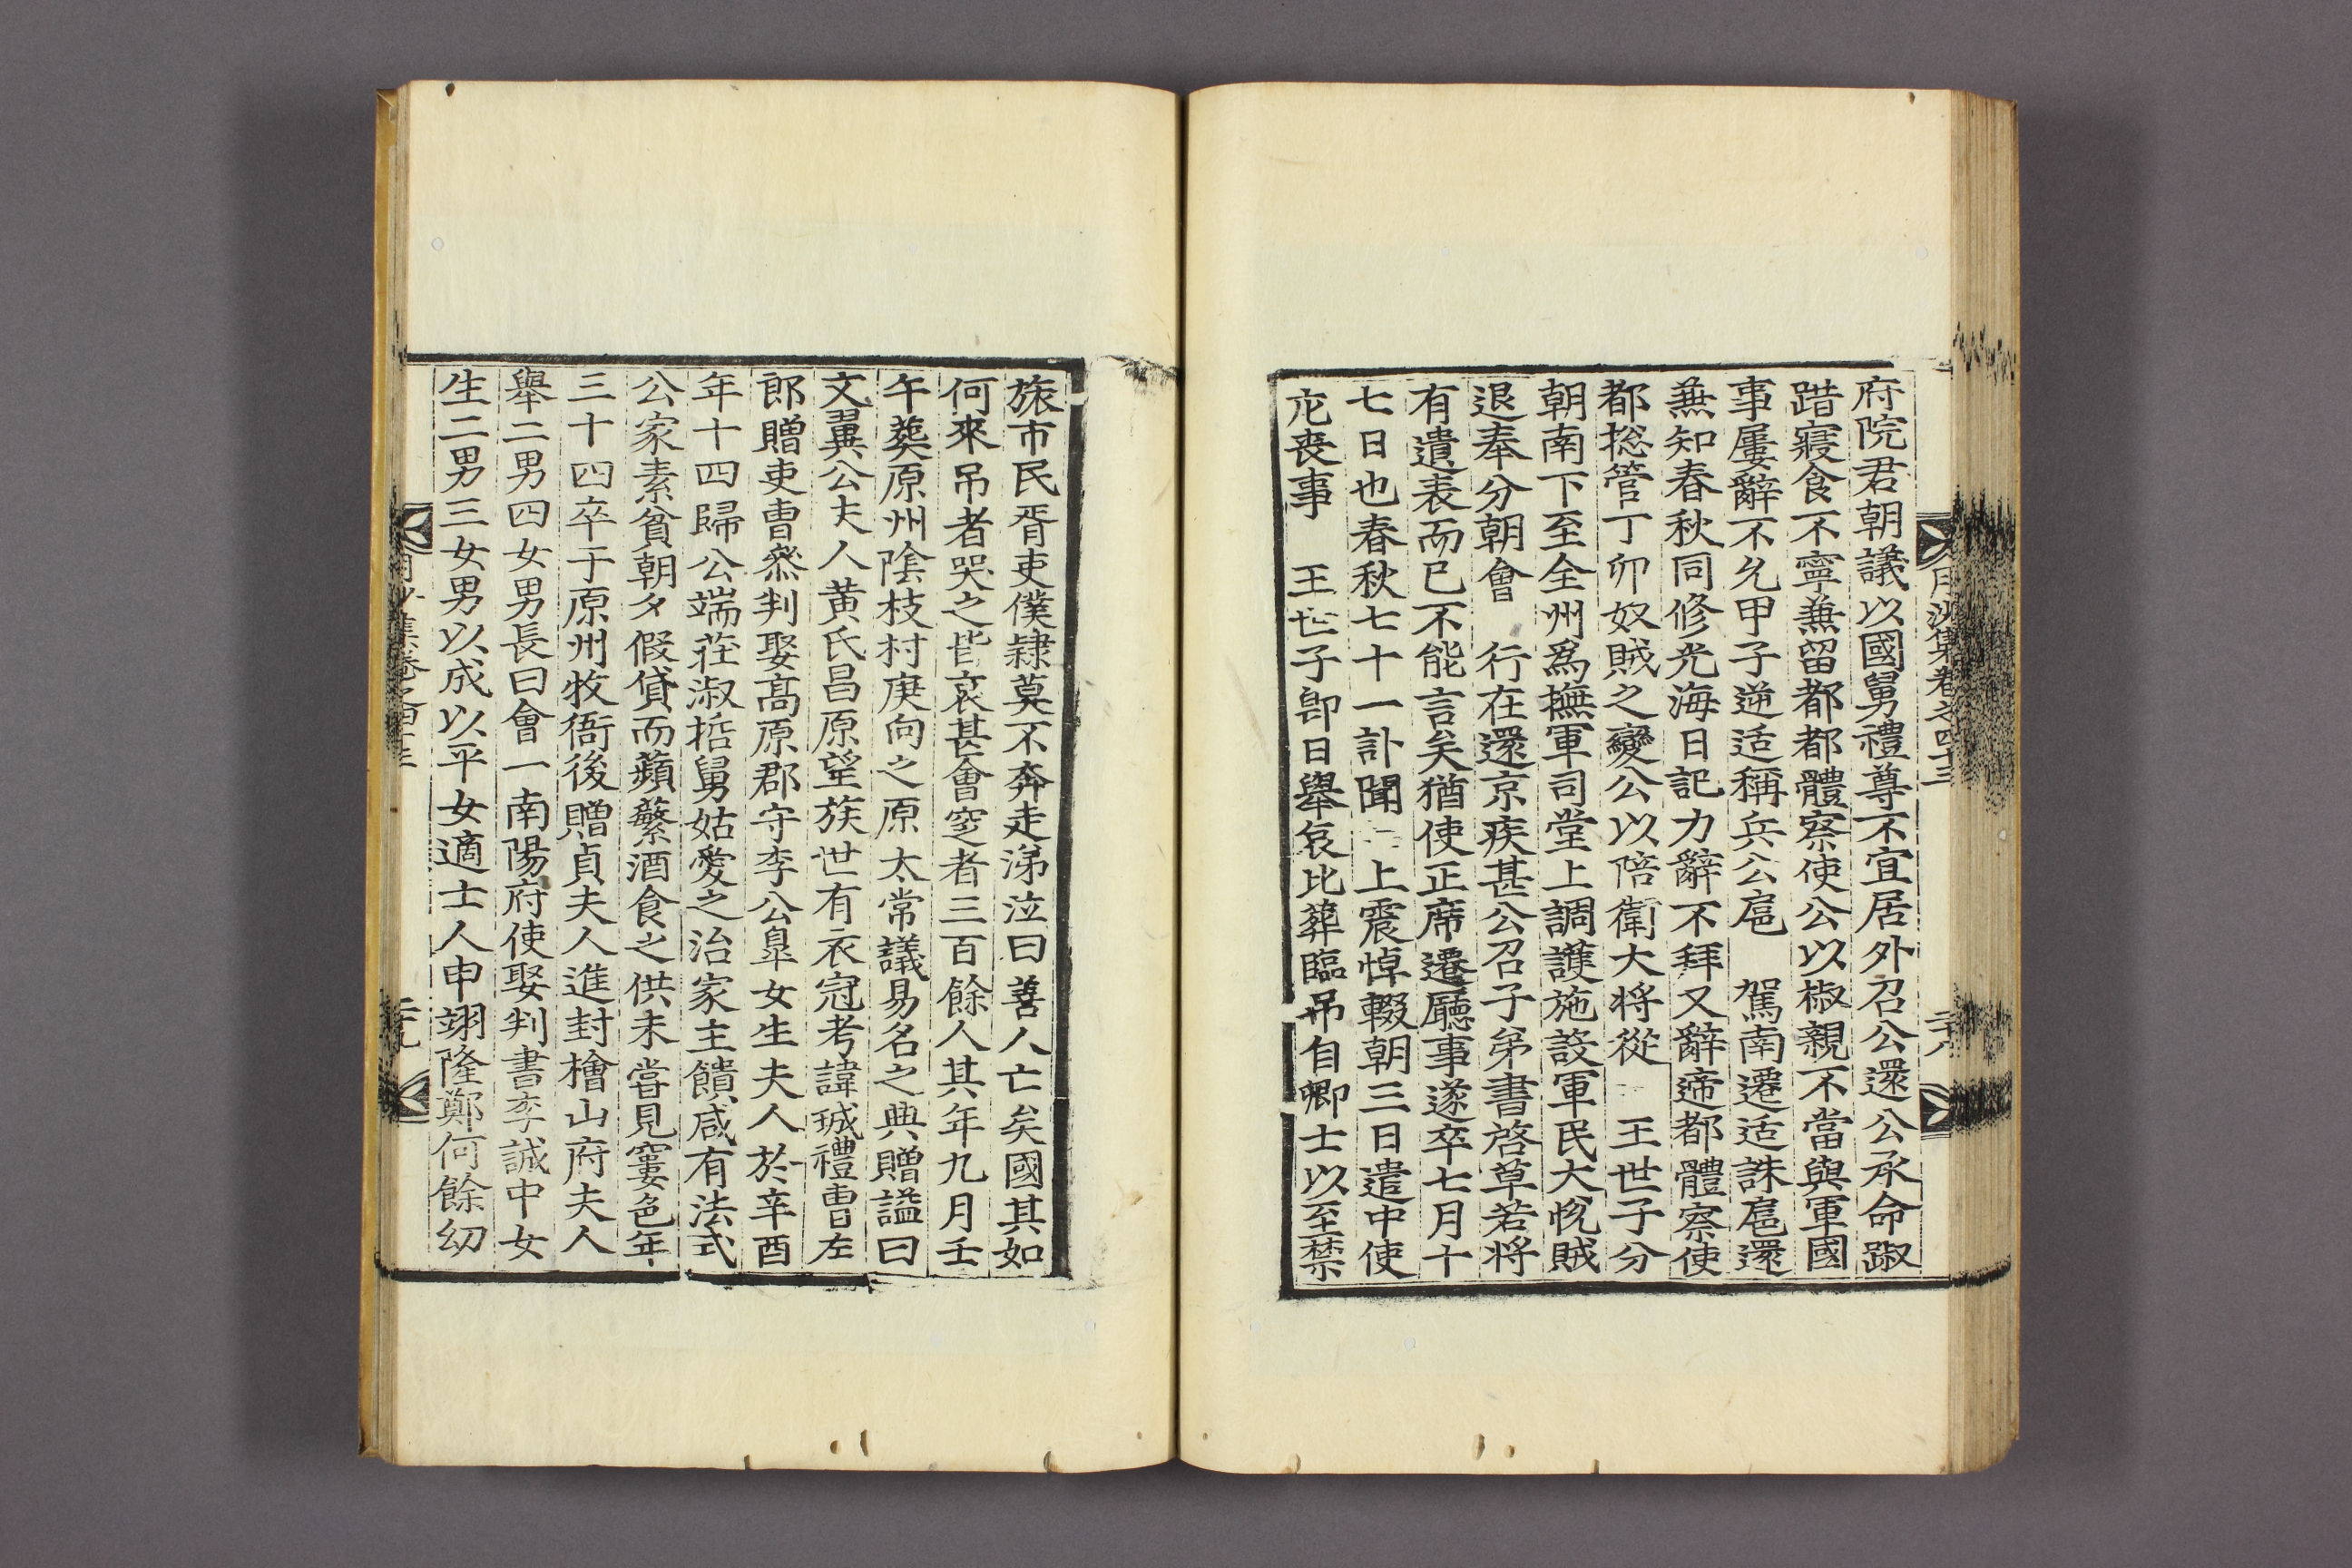 月沙集卷之四十三
二十八
府院君朝議以國舅禮尊不宜居外召公還公承命踧
踖寢食不寧兼留都都體察使公以椒親不當與軍國
事屢辭不允甲子逆适稱兵公扈　駕南遷适誅扈還
兼知春秋同修光海日記力辭不拜又辭遆都體察使
都捴管丁卯奴賊之變公以陪衛大将從　王世子分
朝南下至全州爲撫軍司堂上調護施設軍民大悅賊
退奉分朝會　行在還京疾甚公召子弟書啓草若将
有遺表而已不能言矣猶使正席遷廳事遂卒七月十
七日也春秋七十一訃聞　上震悼輟朝三日遣中使
庀喪事　王世子卽日擧哀比葬臨吊自卿士以至禁
旅市民胥吏僕隷莫不奔走涕泣曰善人亡矣國其如
何來吊者哭之皆哀甚會窆者三百餘人其年九月壬
午葬原州陰枝村庚向之原太常議易名之典贈謚曰
文翼公夫人黄氏昌原望族世有衣冠考諱珹禮曹左
郎贈吏曹叅判娶高原郡守李公皐女生夫人於辛酉
年十四歸公端莊淑哲舅姑愛之治家主饋咸有法式
公家素貧朝夕假貸而蘋蘩酒食之供未嘗見窶色年
三十四卒于原州牧衙後贈貞夫人進封檜山府夫人
擧二男四女男長曰會一南陽府使娶判書李誠中女
生二男三女男以成以平女適士人申翊隆鄭何餘幼
月沙集卷之四十三
二十九